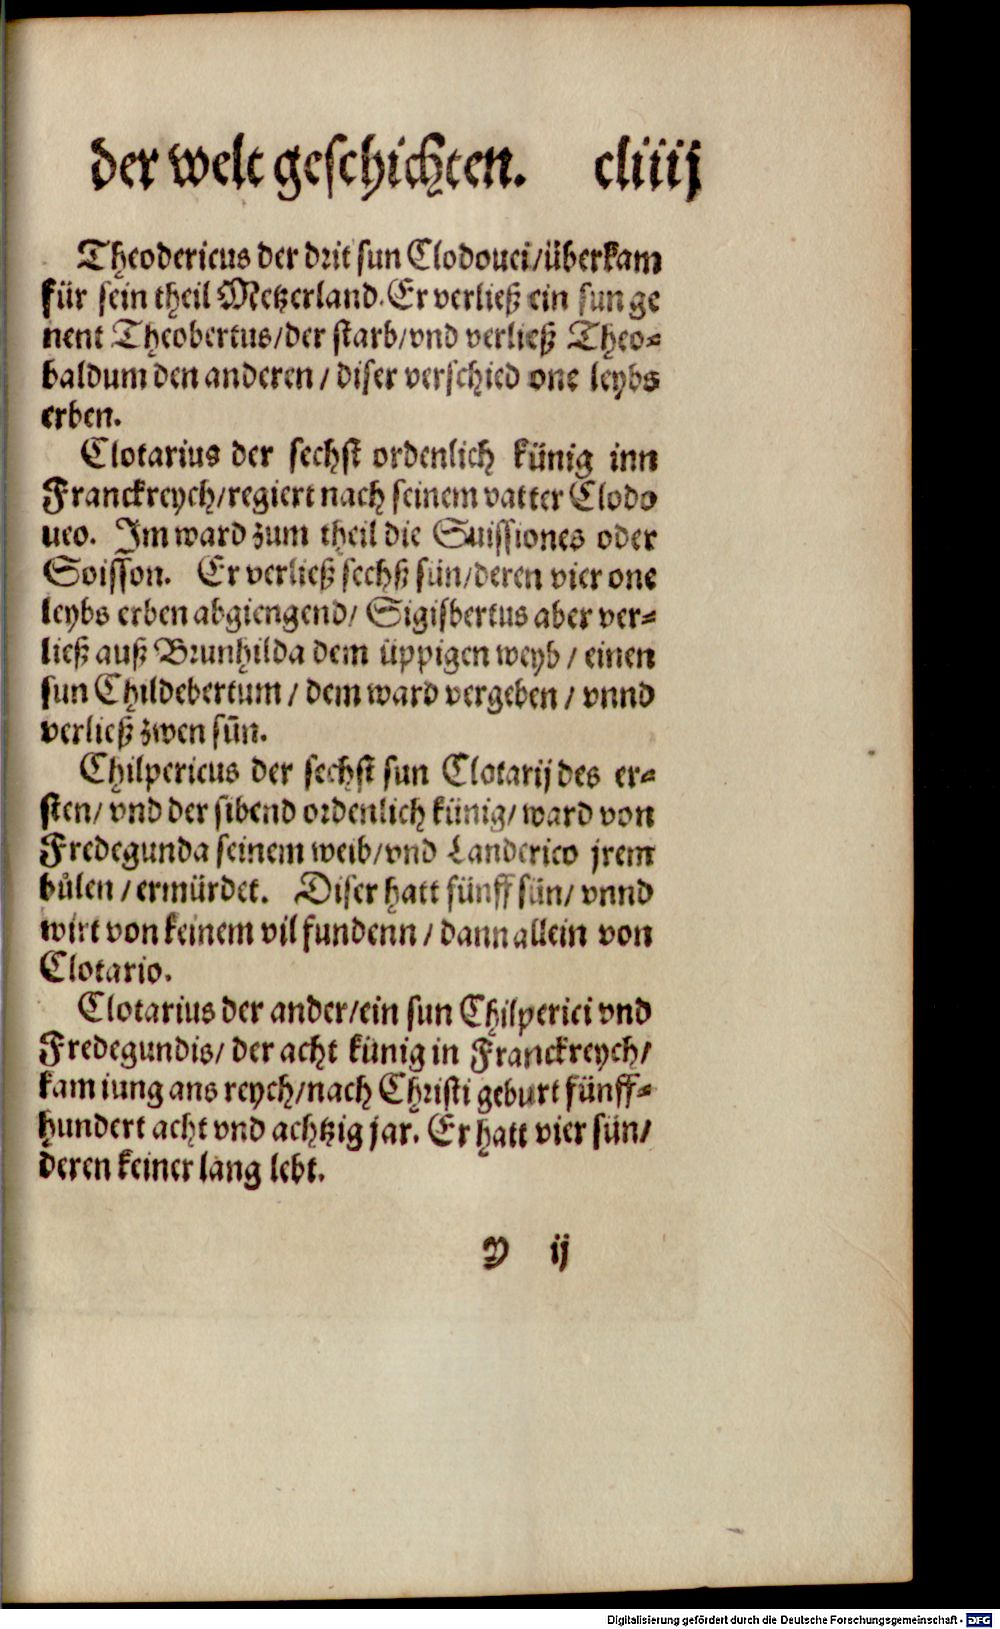 der welt geschichten. cliiij
Theodericus der drit sun Clodouei/überkam
für sein theil Metzerland. Er verließ ein sun ge
nent Theobertus/der starb/vnd verließ Theo-
baldum den anderen / diser verschied one leybs
erben.
Clotarius der sechst ordenlich künig inn
Franckreych/regiert nach seinem vatter Clodo
ueo. Im ward zum theil die Suissiones oder
Soisson. Er verließ sechß sün/deren vier one
leybs erben abgiengend/ Sigisbertus aber ver-
ließ auß Brunhilda dem üppigen weyb / einen
sun Childebertum / dem ward vergeben / vnnd
verließ zwen sün.
Chilpericus der sechst sun Clotarij des er-
sten/ vnd der sibend ordenlich künig/ ward von
Fredegunda seinem weib/vnd Landerico jrem
bůlen / ermürdet. Diser hatt fünff sün/ vnnd
wirt von keinem vil fundenn / dann allein von
Clotario.
Clotarius der ander/ein sun Chilperici vnd
Fredegundis/ der acht künig in Franckreych/
kam iung ans reych/nach Christi geburt fünff-
hundert acht vnd achtzig jar. Er hatt vier sün/
deren keiner lang lebt.
Y ij
Digitalisierung gefördert durch die Deutsche Forschungsgemeinschaft - DFG